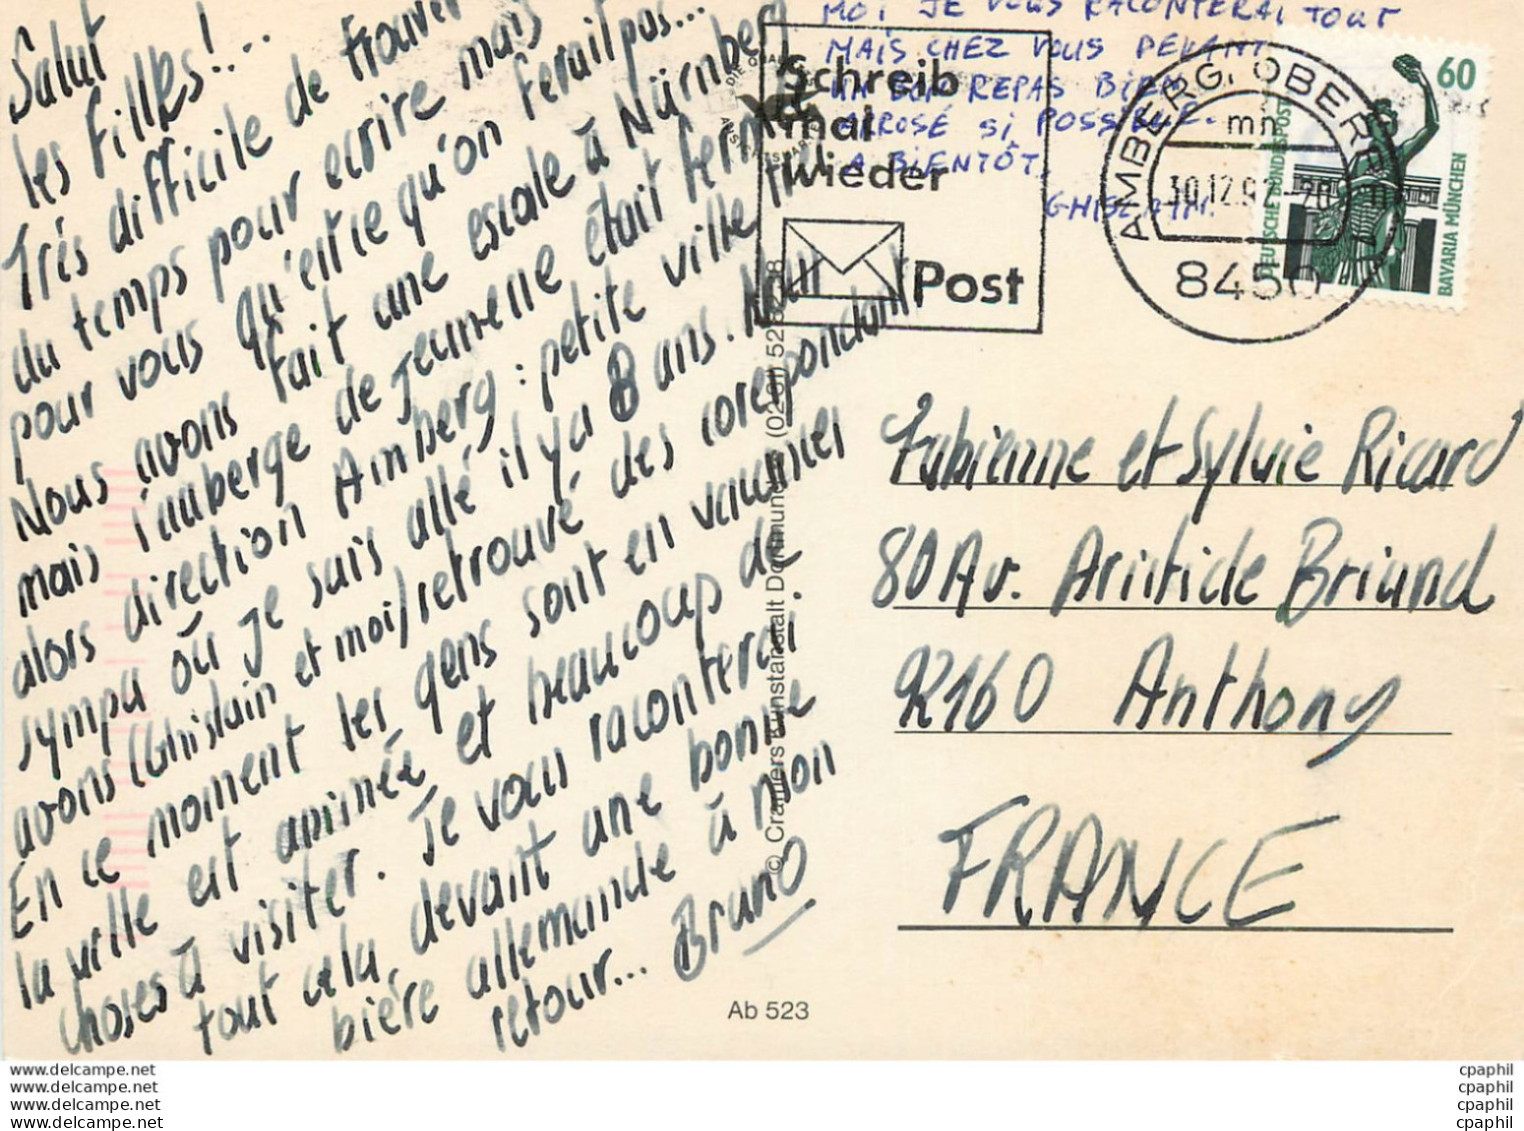 Salut
les filles !...
Trés difficile de trouver
du temps pour ecrire mais
pour vous qu'entce qu'on ferait pas...
Nous avons fait une escale à Nürnberg
mais l'auberge de jeunesse était fermé
alors direction Amberg : petite ville trés
sympa où je suis allé il y a 8 ans. Nous
avons (Ghislain et moi) retrouvé des corespondants
En ce moment les gens sont en vacances
la ville est animée et beaucoup de
choses à visiter. Je vous raconterai
tout cela devant une bonne
bière allemande à mon
retour... Bruno
MOI JE VOUS RACONTERAI TOUT
MAIS CHEZ VOUS DEVANT
UN BON REPAS BIEN
ARROSÉ SI POSSIBLE.
A BIENTÔT,
GHISLAIN.
Schreib
mal
wieder
Post
AMBERG, OBERPF
mn
30.12.92-20
8450
60
DEUTSCHE BUNDESPOST
BAVARIA MÜNCHEN
Fabienne et Sylvie Ricard
80 Av. Aristide Briand
92160 Anthony
FRANCE
© Cramers Kunstanstalt Dortmund
Ab 523
www.delcampe.net
www.delcampe.net
www.delcampe.net
www.delcampe.net
cpaphil
cpaphil
cpaphil
cpaphil